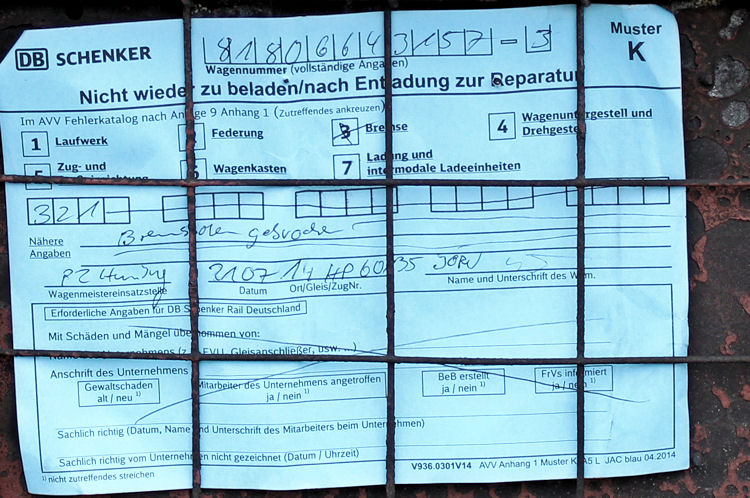 DB SCHENKER
8180664 3157-3
Muster
K
Wagennummer (vollständige Angaben)
Nicht wieder zu beladen/nach Entladung zur Reparatur
Im AVV Fehlerkatalog nach Anlage 9 Anhang 1 (Zutreffendes ankreuzen)
1 Laufwerk
Federung
3 Bremse
4 Wagenuntergestell und Drehgestell
5 Zug- und
6 Wagenkasten
7 Ladung und intermodale Ladeeinheiten
321-
Nähere Angaben
Bremssohlen gebrochen
PZ
2107 14
JÖRN
Wagenmeistereinsatzstelle
Datum
Ort/Gleis/ZugNr.
Name und Unterschrift des Wgm.
Erforderliche Angaben für DB Schenker Rail Deutschland
Mit Schäden und Mängel übernommen von:
Name des Unternehmens (z.B. EVU, Gleisanschließer, usw. ...)
Anschrift des Unternehmens
Gewaltschaden alt / neu 1)
Mitarbeiter des Unternehmens angetroffen ja / nein 1)
BeB erstellt ja / nein 1)
FrVs informiert ja / nein 1)
Sachlich richtig (Datum, Name und Unterschrift des Mitarbeiters beim Unternehmen)
Sachlich richtig vom Unternehmen nicht gezeichnet (Datum / Uhrzeit)
1) nicht zutreffendes streichen
V936.0301V14 AVV Anhang 1 Muster K A5 L JAC blau 04.2014